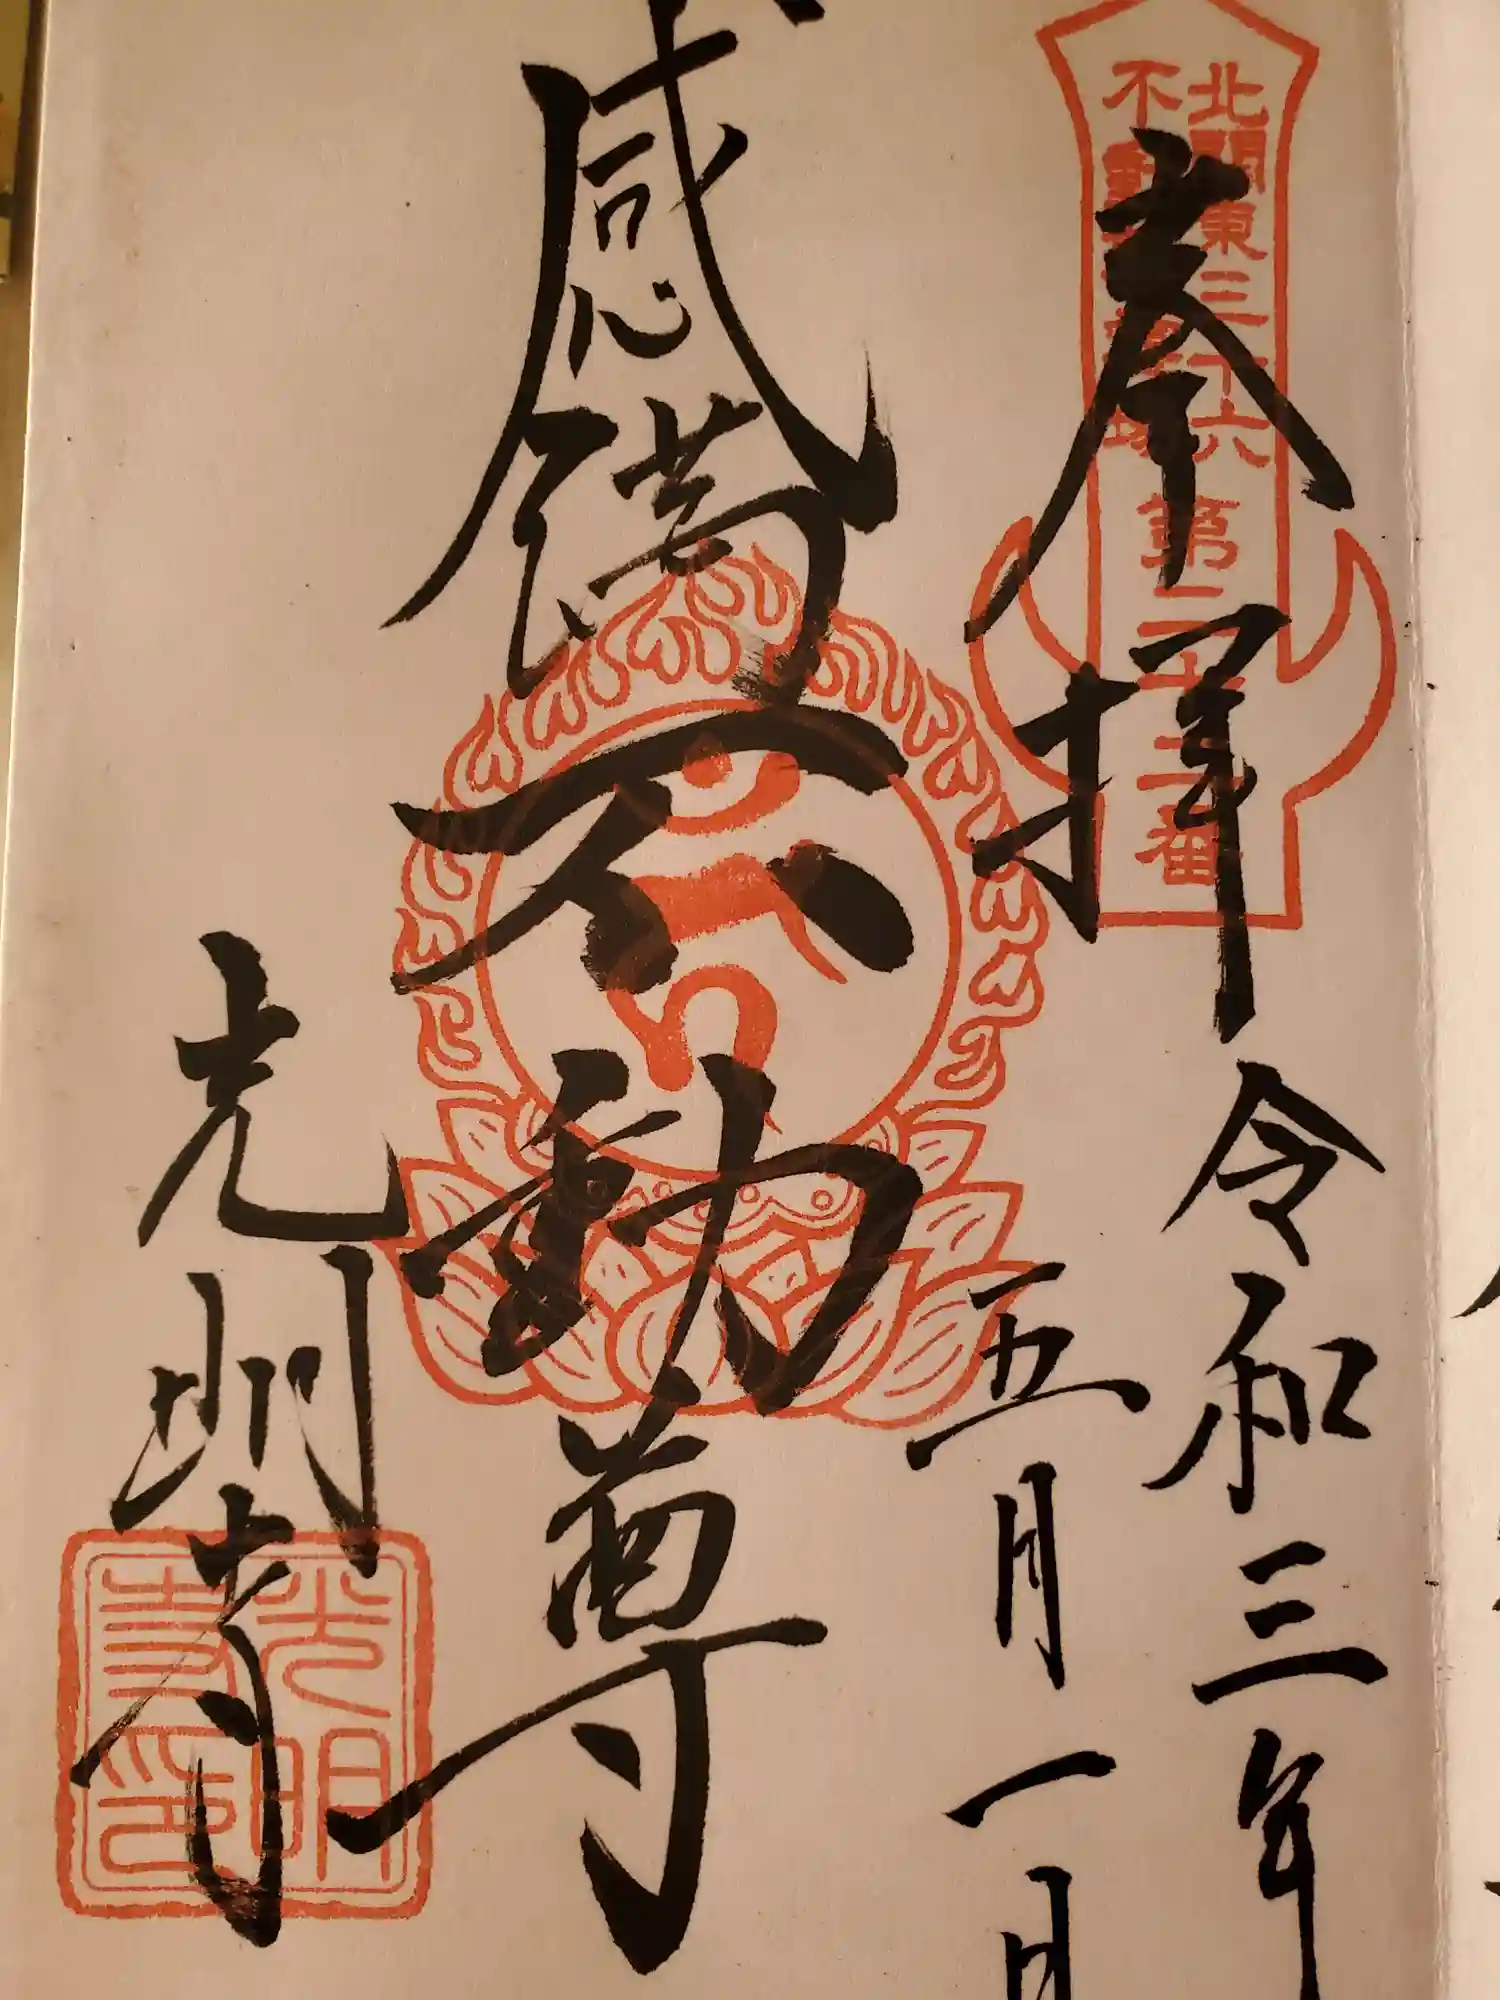 奉拝
北関東三十六
不動尊霊場
令和三年
五月一日
感満不動尊
光明寺
光明
寺印